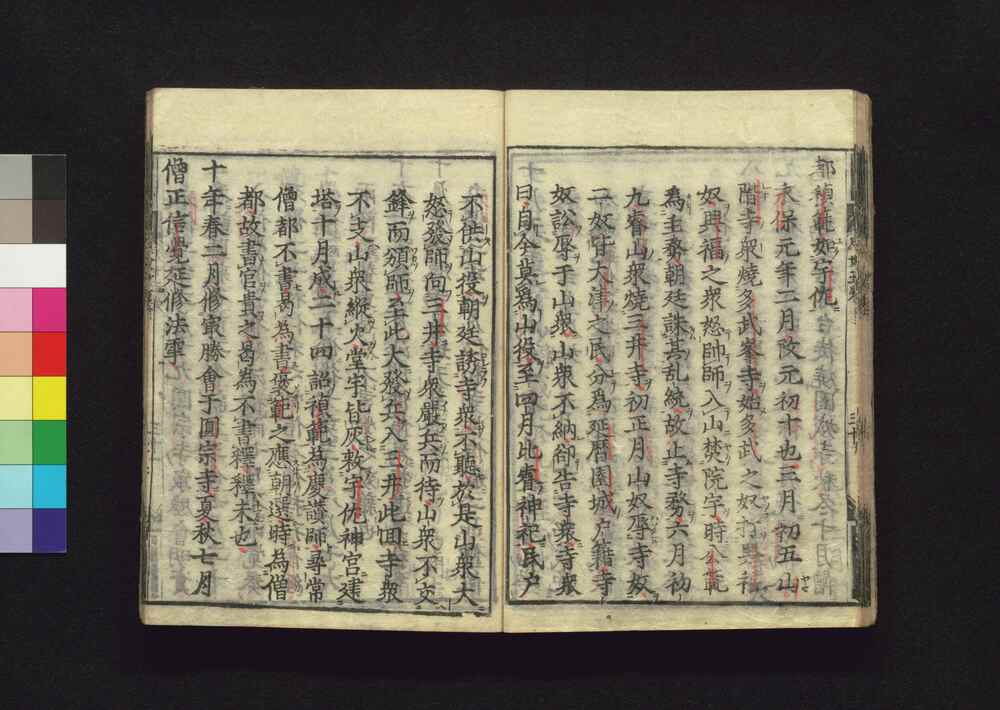 永保元年二月改元初十也三月初五山
階寺衆燒多武峯寺始多武之奴
奴興福之衆怒帥師入山焚院宇時
爲主務朝廷誅甚乱統故止寺務六月初
九睿山衆燒三井寺初正月山奴辱寺奴
二奴皆大津之民分爲延曆園城戶籍寺
奴訟辱于山衆山衆不納郤告寺衆寺衆
曰自今莫爲山役至四月比睿神祀民戶
不供山役朝廷誘寺衆不聽於是山衆大
怒發師向三井寺衆嚴兵而待山衆不交
鋒而頒師至此大發兵入三井此囬寺衆
不支山衆縱火堂宇皆灰救宇佐神宮建
塔十月成二十四詔禎範爲慶讃師尋常
僧都不書曷為書褒範之應朝選時為僧
都故書官貴之曷為不書釋釋未也
十年春二月修最勝會于圓宗寺夏秋七月
僧正信覺延修法雩